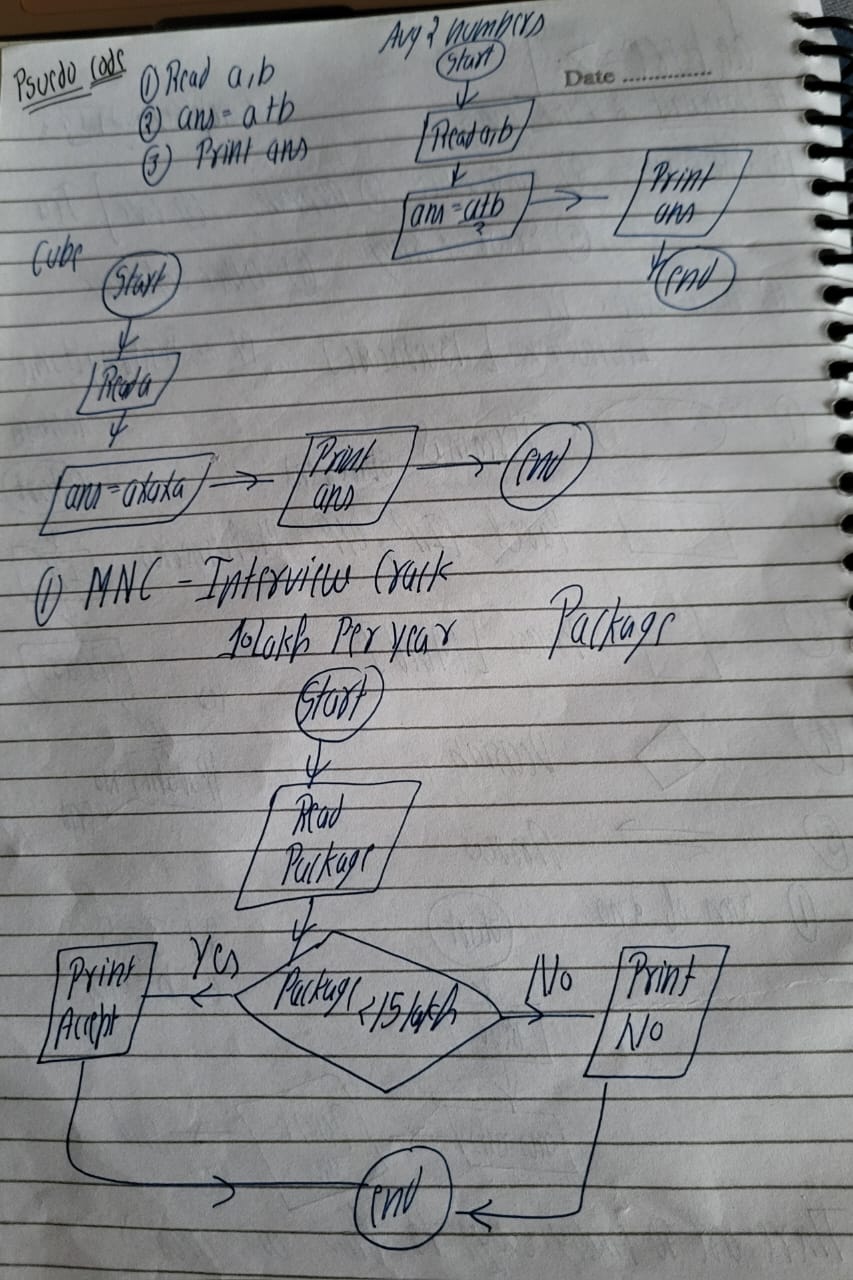 Avg 2 numbers
Psuedo code
① Read a,b
② ans = a+b
③ Print ans
Date ..............
Start
Read a,b
ans = a+b
2
Print
ans
end
Cube
Start
Read a
ans = axaxa
Print
ans
end
① MNC - Interview Crack
10 lakh Per year
Package
Start
Read
Package
Package <15 lakh
Yes
Print
Accept
No
Print
No
end